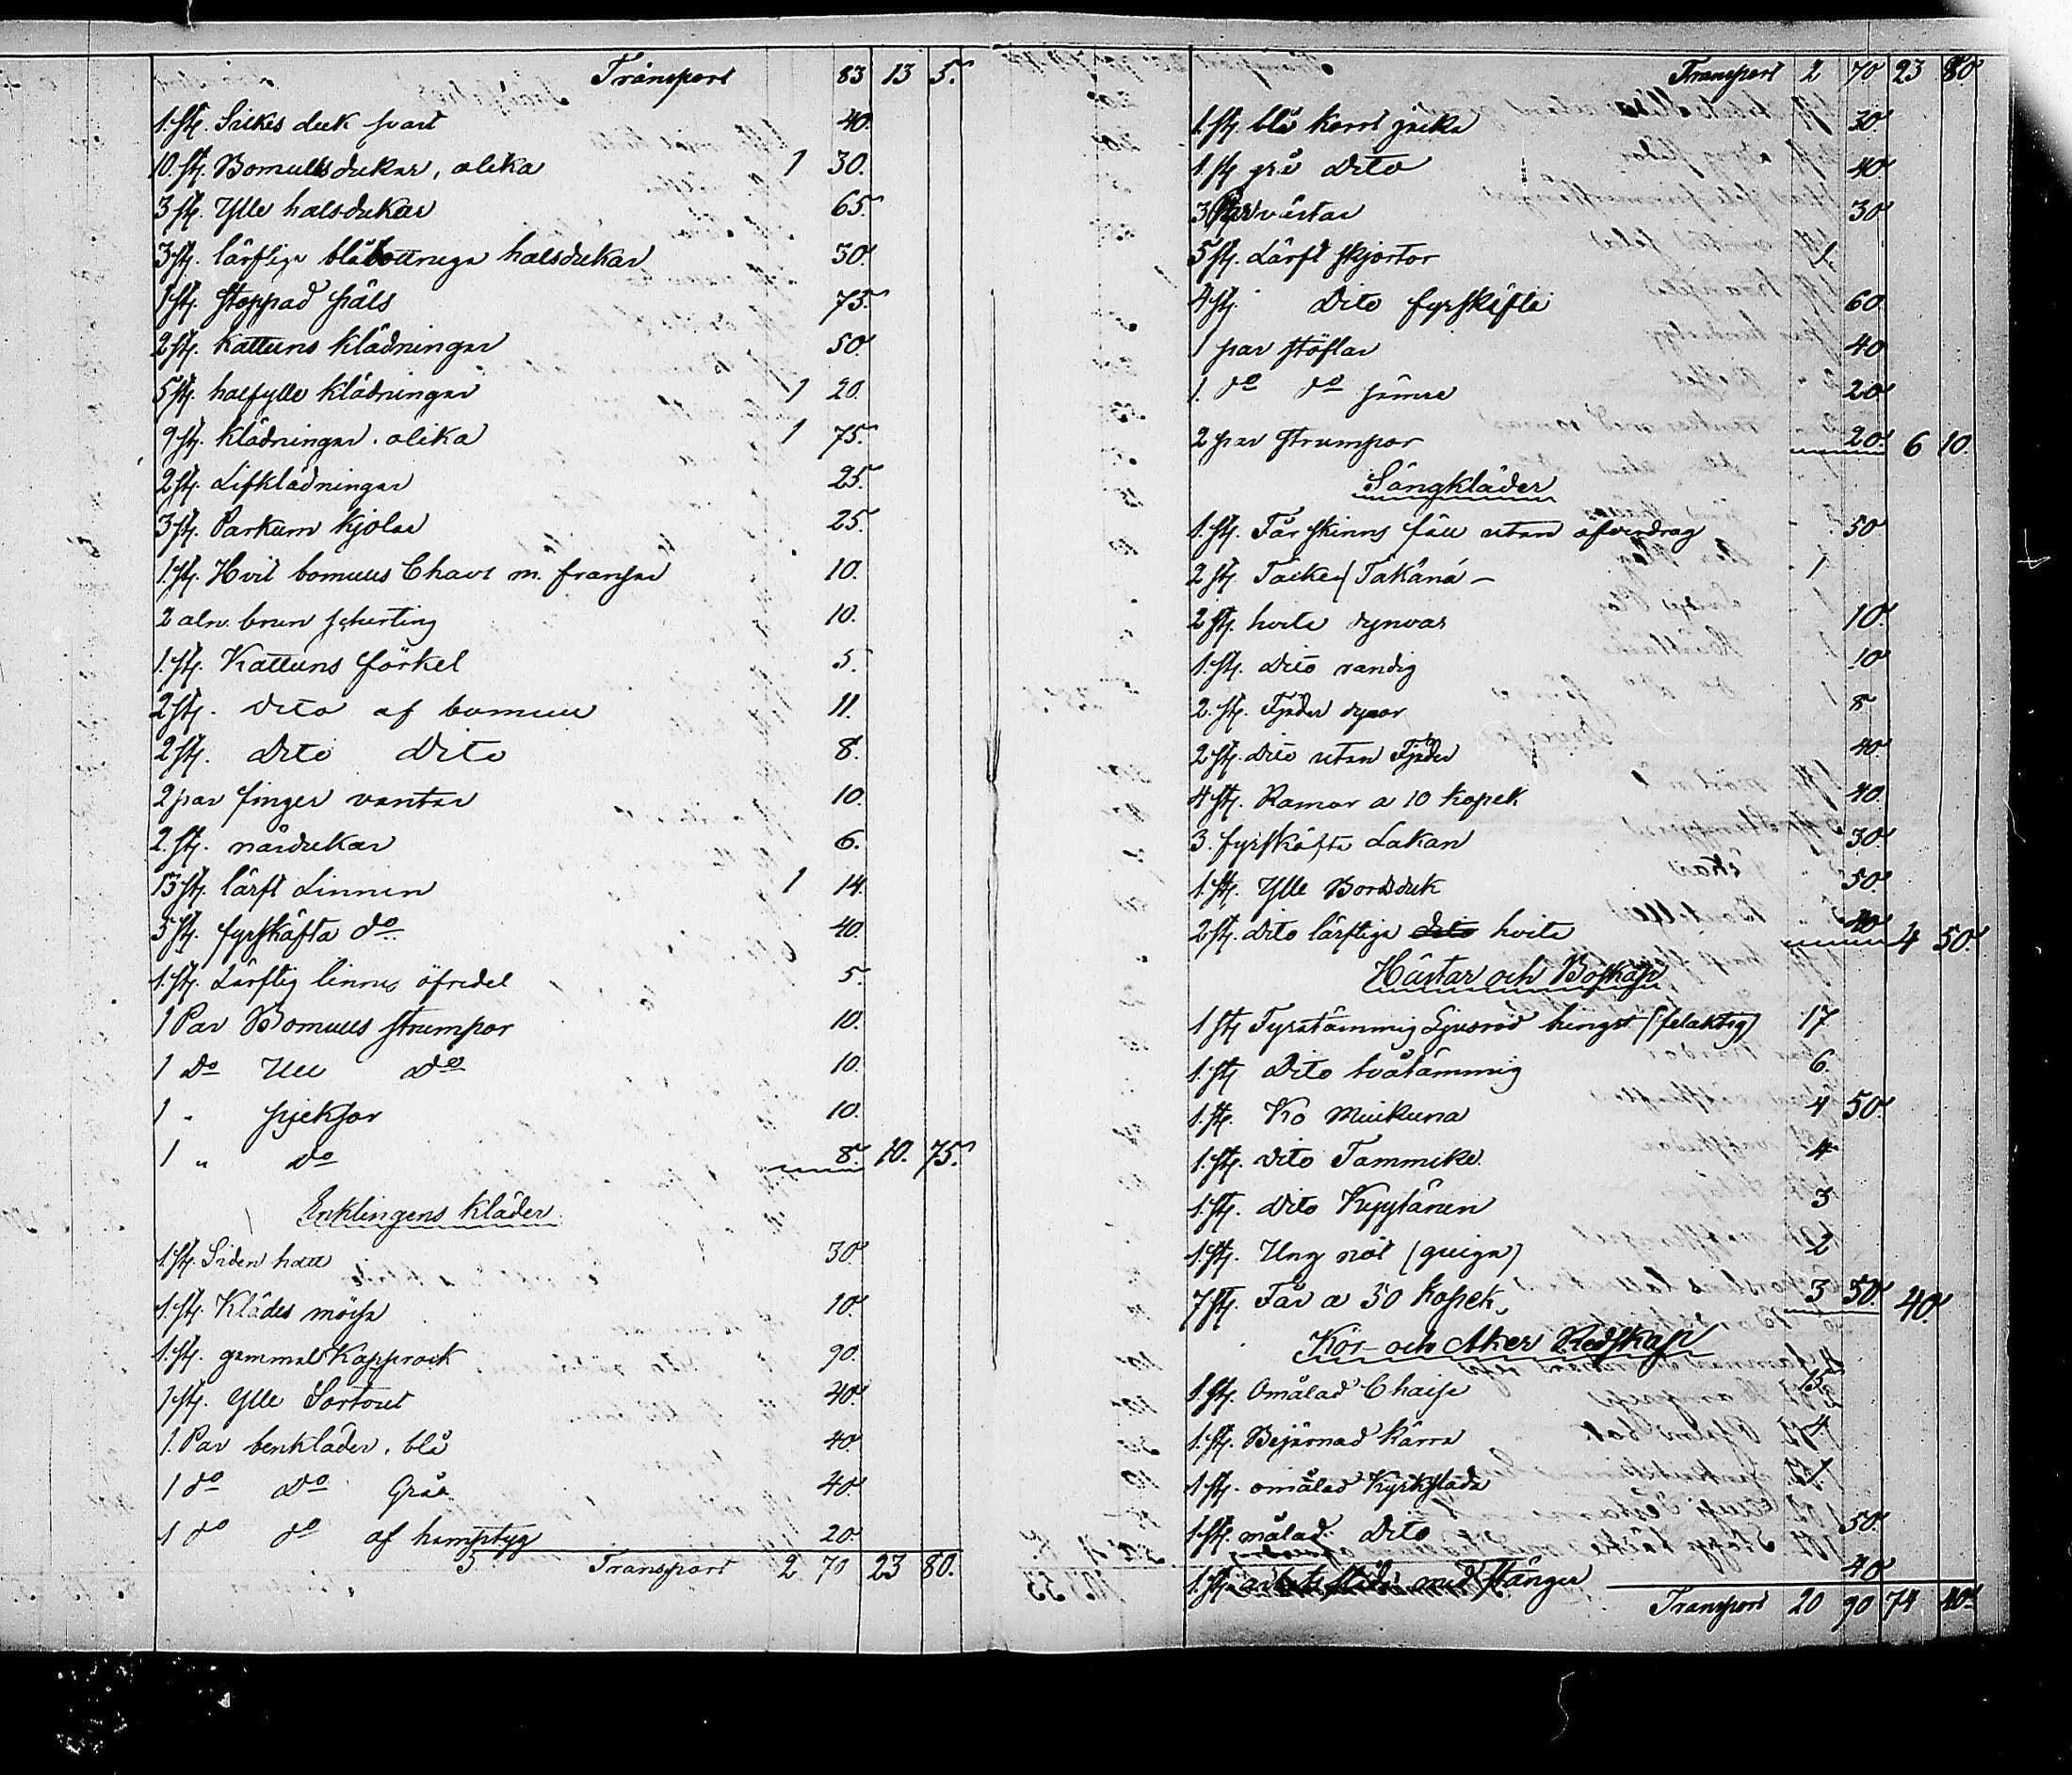 Transport 83 13 5.
1. stj. Silkes duk svart 40.
10. stj. Bomullsdukar, olika 1 30.
3 stj. Ylle halsdukar 65.
3 stj. lärftiga blåbottniga halsdukar 30.
1 stj. stoppad päls 75.
2 stj. Kattuns klädningar 50.
5 stj. halfylle klädningar 1 20
9 stj. klädningar. olika 1 75.
2 stj. Lifklädningar 25.
3 stj. Parkum kjolar 25.
1. stj. Hvit bomulls Chavl m. fransar 10.
2 aln. brun scherting 10.
1. stj. Kattuns förkel 5.
2 stj. dito af bomull 11.
2 stj. dito dito 8.
2 par finger vantar 10.
2. stj. näsdukar 6.
13 stj. lärft Linnen 1 14.
5 stj. fyrskäfta do. 40.
1. stj. Lärftig linnes öfredel 5.
1 Par Bomulls strumpor 10.
1 do Ull do 10.
1 " pjeksor 10.
1 " do 8. 10. 75.
Enklingens kläder
1. stj. Siden hatt 30
1. stj. Klädes mössa 10.
1. stj. gammal Kapprock 90.
1 stj. Ylle Sortout 40.
1. Par benkläder, blå 40.
1 do do Gråa 40.
1 do do af hamptyg 20.
Transport 2 70 23 80.
Transport 2 70 23 80.
1. stj. blå kort jacka 30.
1. stj grå dito 40.
3 Par västar 30
5 stj. Lärft skjortor 1.
4 stj. Dito fyrskäfta 60
1 par stöflar 40
1. do do sämre 20
2 par strumpor 20. 6 10.
Sängkläder
1. stj. Får skinns fäll utan öfverdrag 50
2 stj. Täcken (Takänä) 1
2 stj. hvita dynvar 10.
1. stj. Dito randig 10
2. stj. Fjäder dynor 8
2 stj. dito utan Fjäder 40.
4 stj. Ramar a 10 kopek 40.
3. fyrskäfta Lakan 30.
1. stj. Ylle Bordsduk 50.
2 stj. dito lärftiga dito hvita 40 4 50.
Hästar och Boskap
1 stj Fyratämmig Ljusröd hingst (felaktig) 17
1. stj Dito tvåtämmig 6.
1. stj. Ko Muikuna 4 50.
1. stj. dito Tammike 4
1. stj. dito Kyytänen 3
1. stj. Ung nöt (quiga) 2
7 stj. Får a 50 kopek, 3 50. 40.
Kör- och Åker Redskap
1. stj. Omålad Chaise 15
1. stj. Bejärnad kärra 4
1 stj. omålad Kyrksläda 1
1 stj. målad dito 50.
1. stj. med stänger 40
Transport 20 90 74 40.